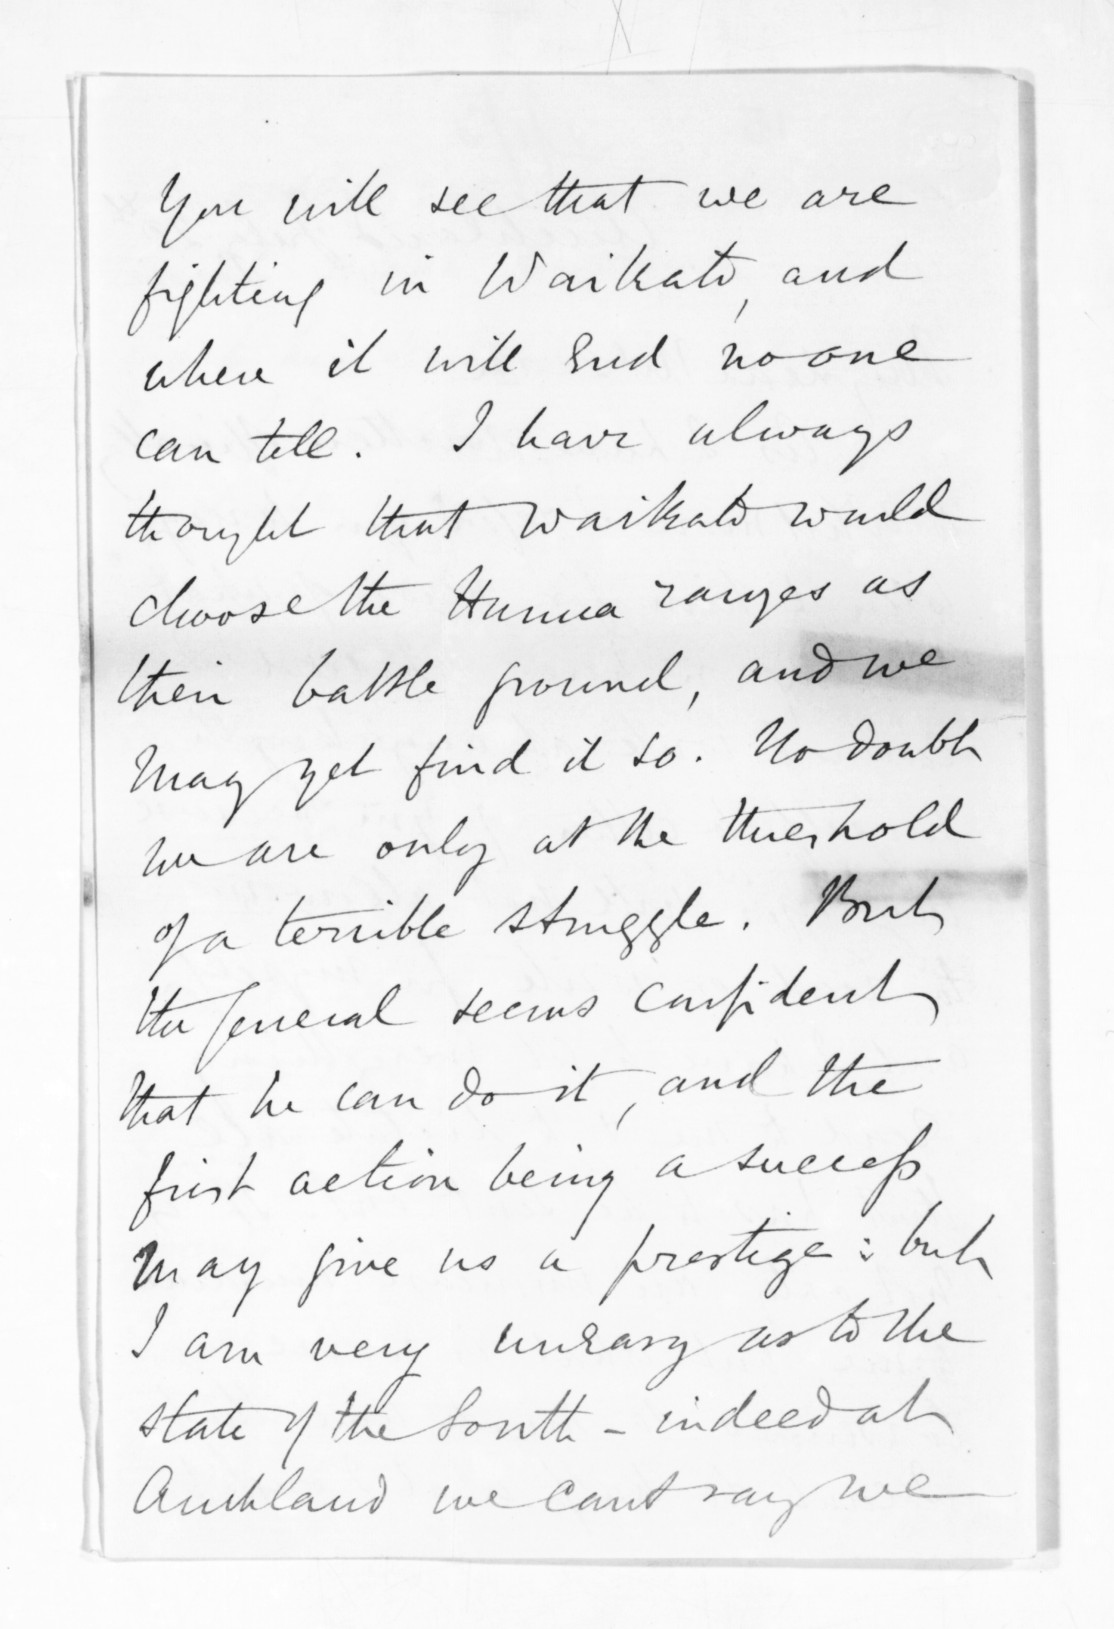 You will see that we are
fighting in Waikato, and
where it will End no one
can tell. I have always
thought that Waikato would
choose the Hunua ranges as
their battle ground, and we
may yet find it so. No doubt
we are only at the threshold
of a terrible struggle. But
the General seems confident
that he can do it, and the
first action being a success
may give us a prestige: but
I am very unEasy as to the
state of the South - indeed at
Auckland we cant say we